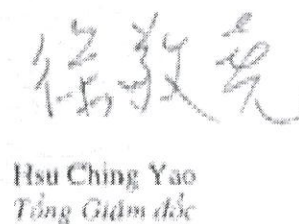 徐敬堯
Hsu Ching Yao
Tổng Giám đốc